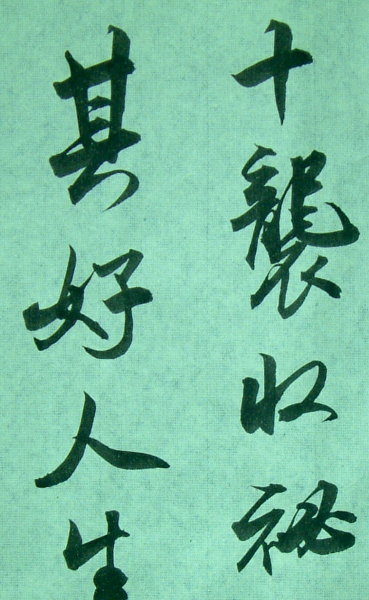 十襲收秘
其好人生